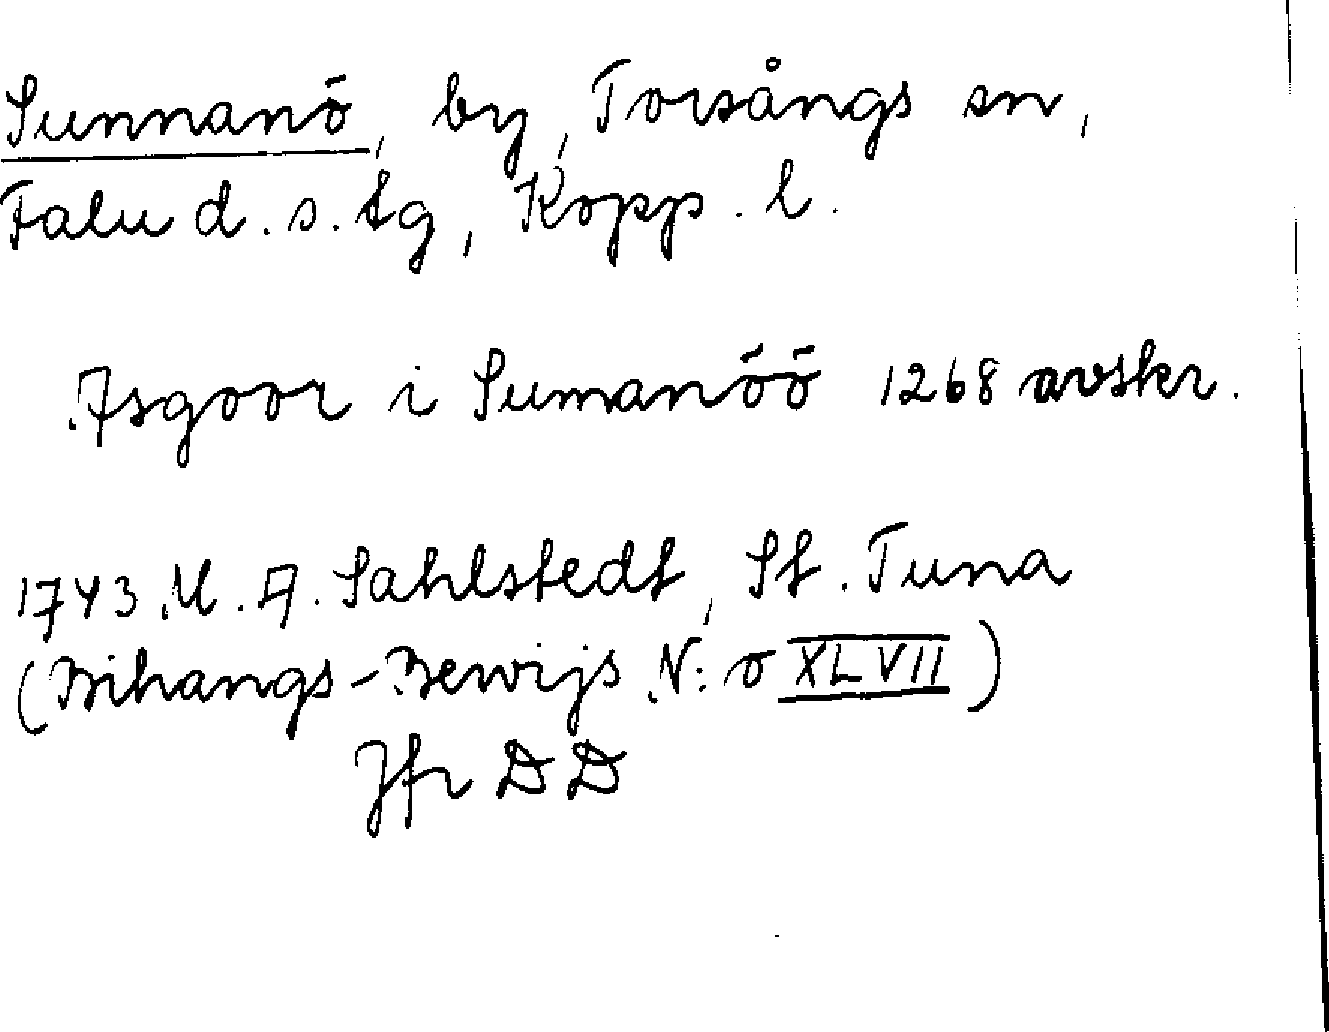 Sunnanö, by, Torsångs sn,
Falu d. s. tg, Kopp. l.
Asgoor i Sumanöö 1268 avskr.
1743 M. A. Sahlstedt, St. Tuna
(Bihangs-Bewijs N:o XLVII)
Jfr DD